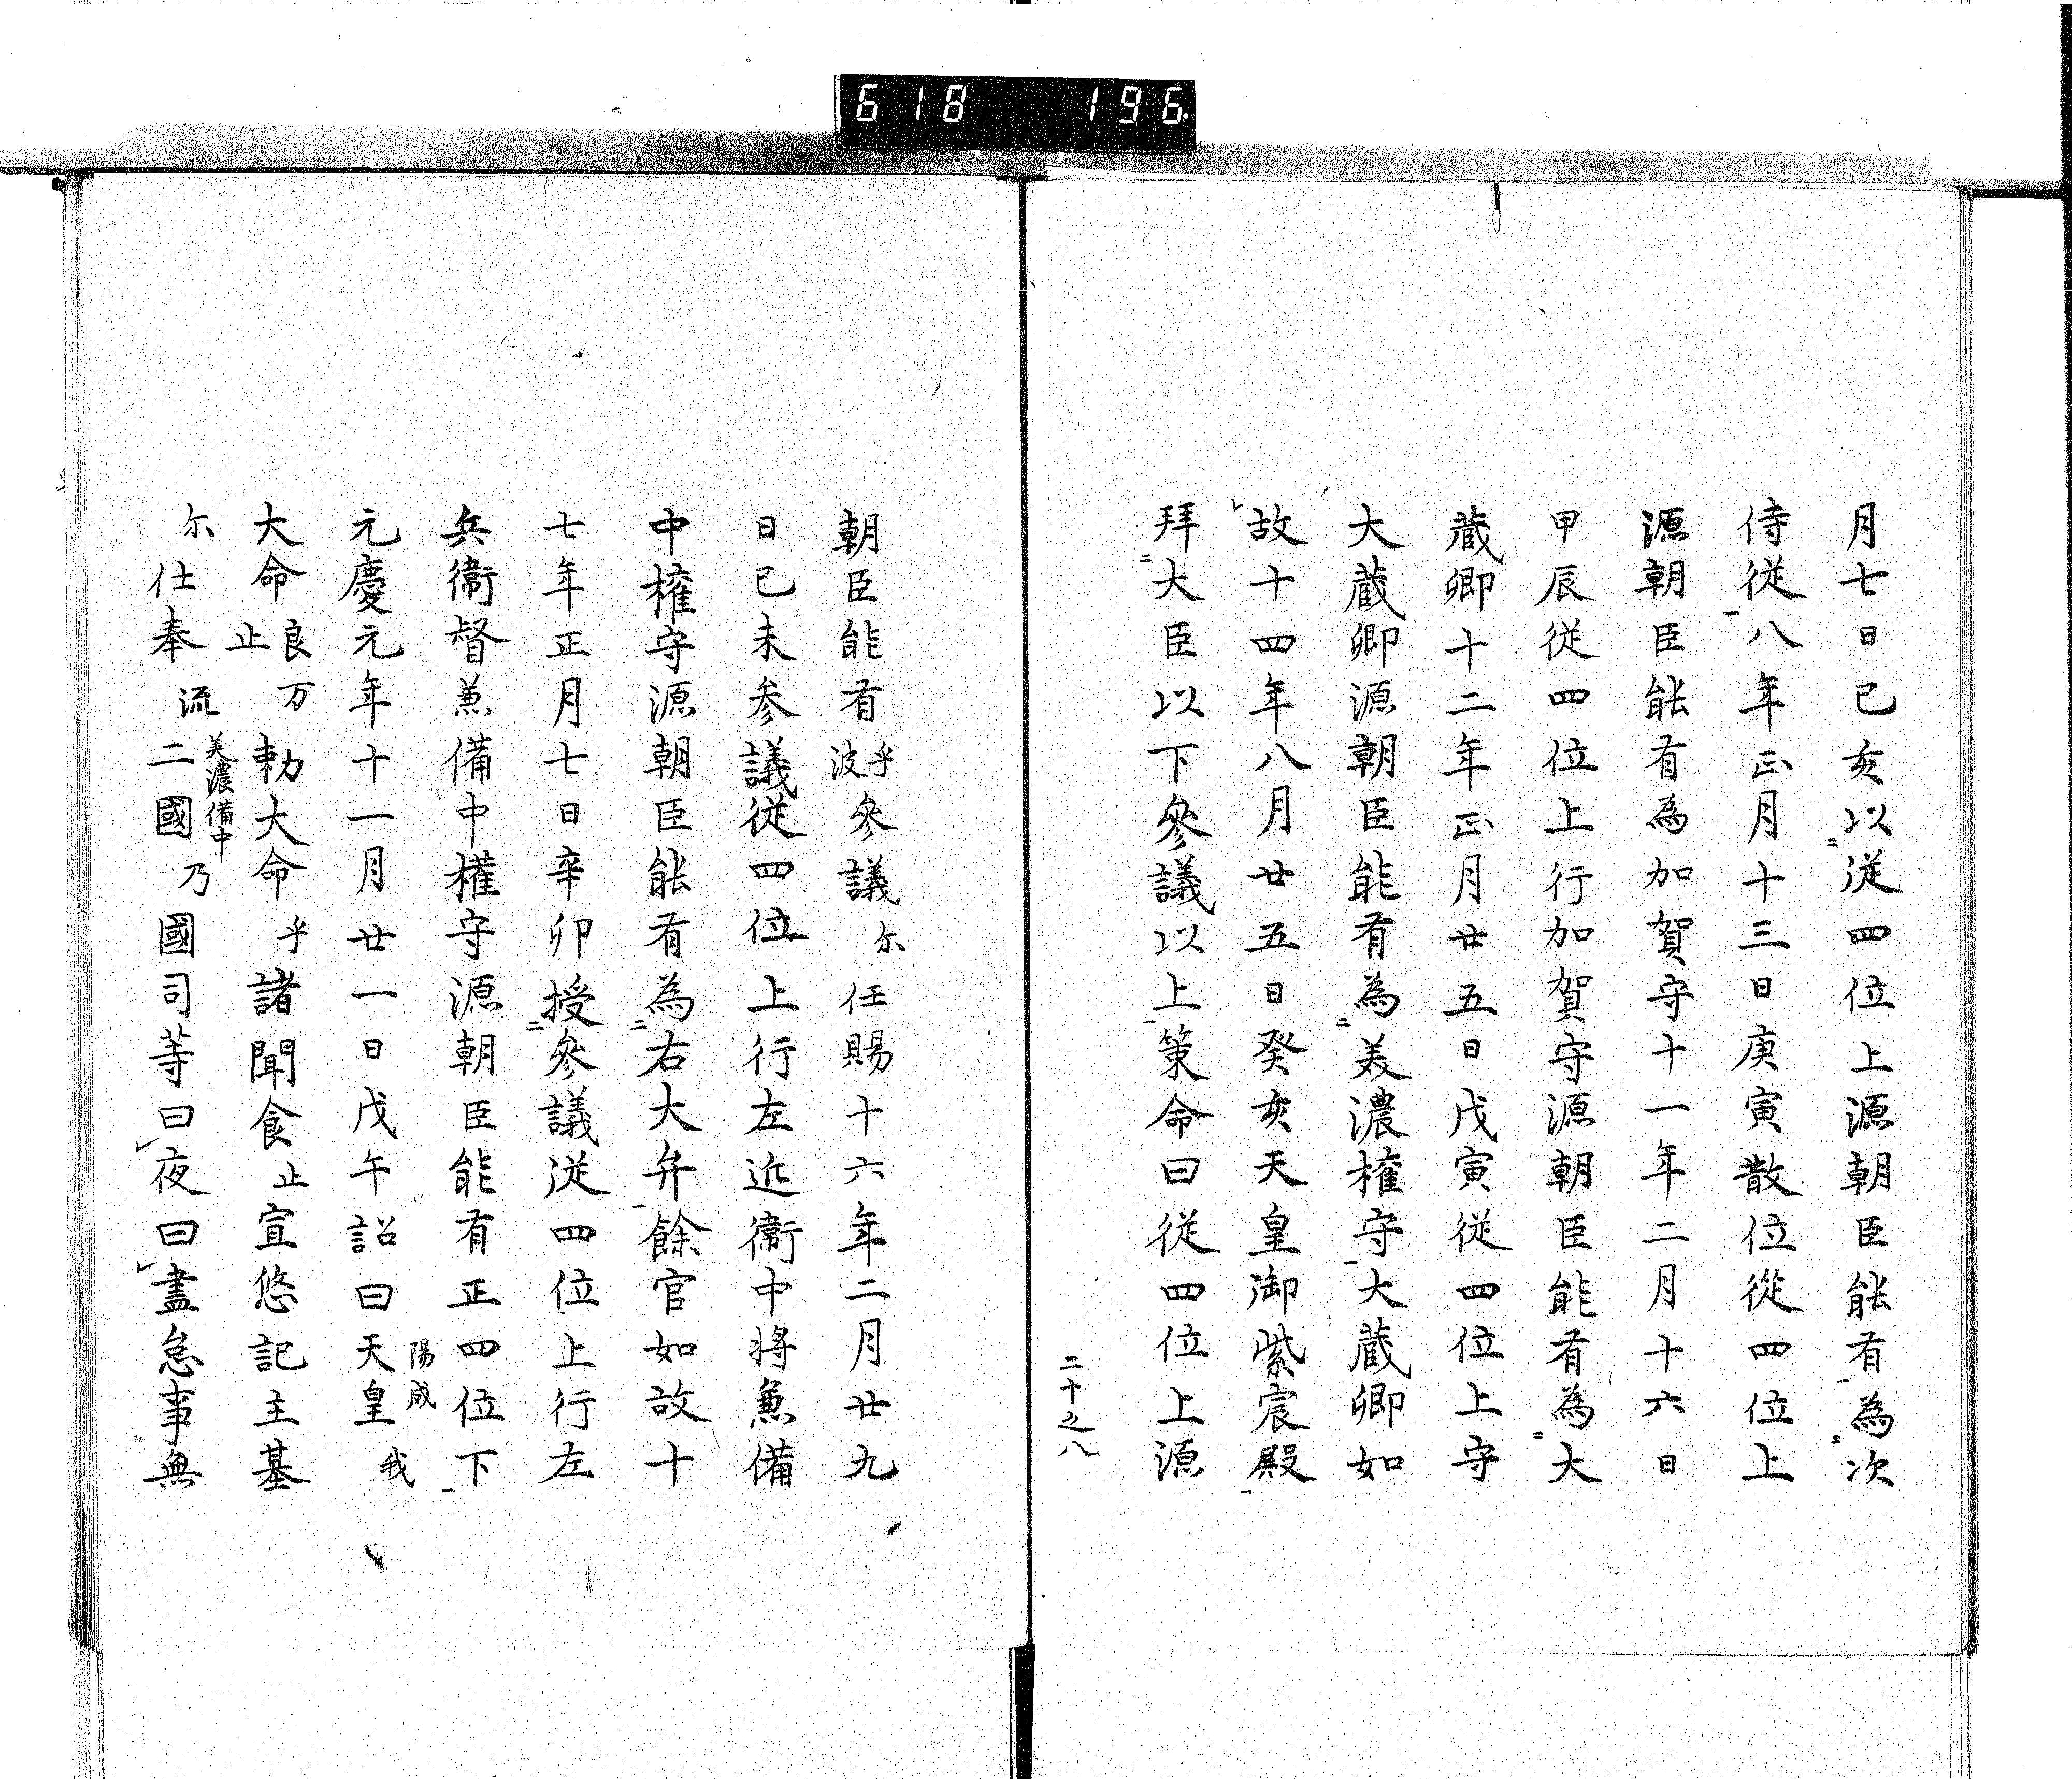 618 196
月七日己亥以二従四位上源朝臣能有一為二次
侍従一八年正月十三日庚寅散位從四位上
源朝臣能有為加賀守十一年二月十六日
甲辰従四位上行加賀守源朝臣能有為二大
蔵卿十二年正月廿五日戊寅従四位上守
大蔵卿源朝臣能有為二美濃権守一大蔵卿如
故十四年八月廿五日癸亥天皇御紫宸殿一
拜二大臣以下參議以上一策命曰従四位上源
二十之八
朝臣能有乎波參議尓任賜十六年二月廿九
日己未参議従四位上行左近衞中将兼備
中権守源朝臣能有為二右大弁一餘官如故十
七年正月七日辛卯授二參議従四位上行左
兵衞督兼備中權守源朝臣能有正四位下一
元慶元年十一月廿一日戊午詔曰天皇陽成我
大命良万止勅大命乎諸聞食止宣悠記主基
尓仕奉流美濃備中二國乃國司等曰夜曰盡怠事無